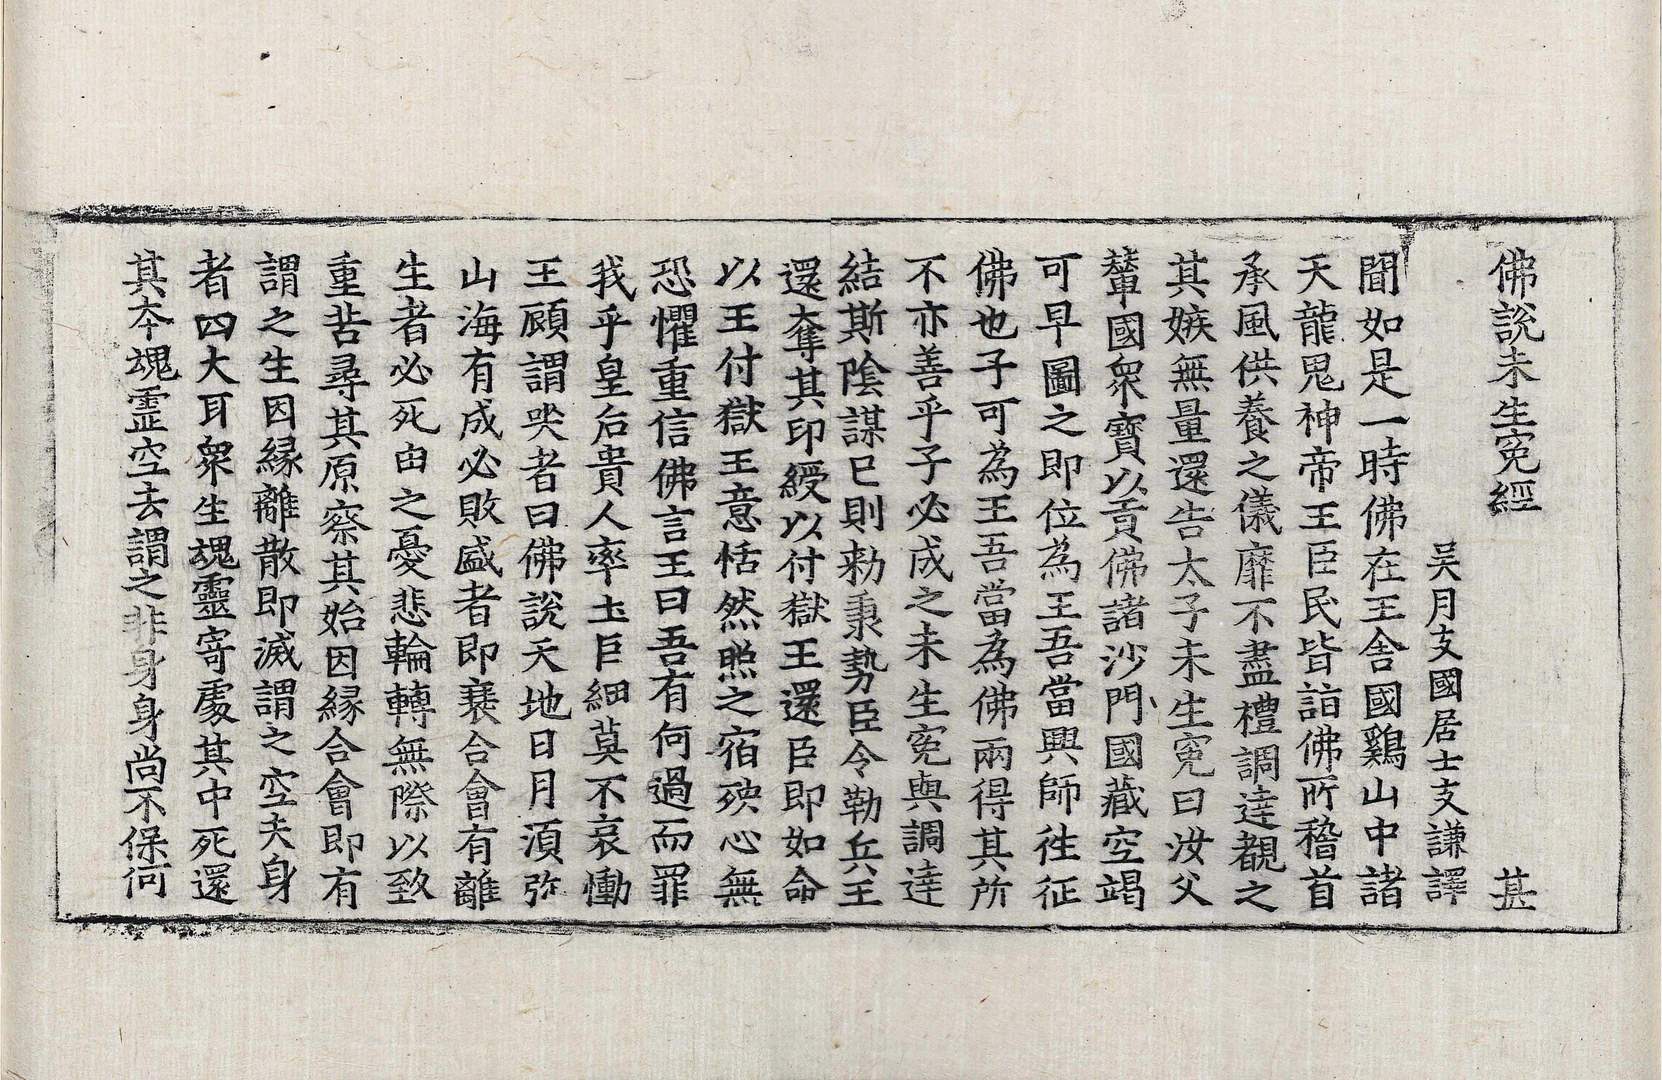 佛說未生冤經 甚
吳月支國居士支謙譯
聞如是一時佛在王舍國鷄山中諸
天龍鬼神帝王臣民皆詣佛所稽首
承風供養之儀靡不盡禮調達覩之
其嫉無量還告太子未生冤曰汝父
輦國衆寶以貢佛諸沙門國藏空竭
可早圖之即位為王吾當興師徃征
佛也子可為王吾當為佛兩得其所
不亦善乎子必成之未生冤與調達
結斯陰謀已則勑秉勢臣令勒兵王
還奪其印綬以付獄王還臣即如命
以王付獄王意恬然照之宿殃心無
恐懼重信佛言王曰吾有何過而罪
我乎皇后貴人率土巨細莫不哀慟
王顧謂哭者曰佛說天地日月湏弥
山海有成必敗盛者即衰合會有離
生者必死由之憂悲輪轉無際以致
重苦尋其原察其始因縁合會即有
謂之生因縁離散即滅謂之空夫身
者四大耳衆生魂靈寄處其中死還
其本魂霊空去謂之非身身尚不保何